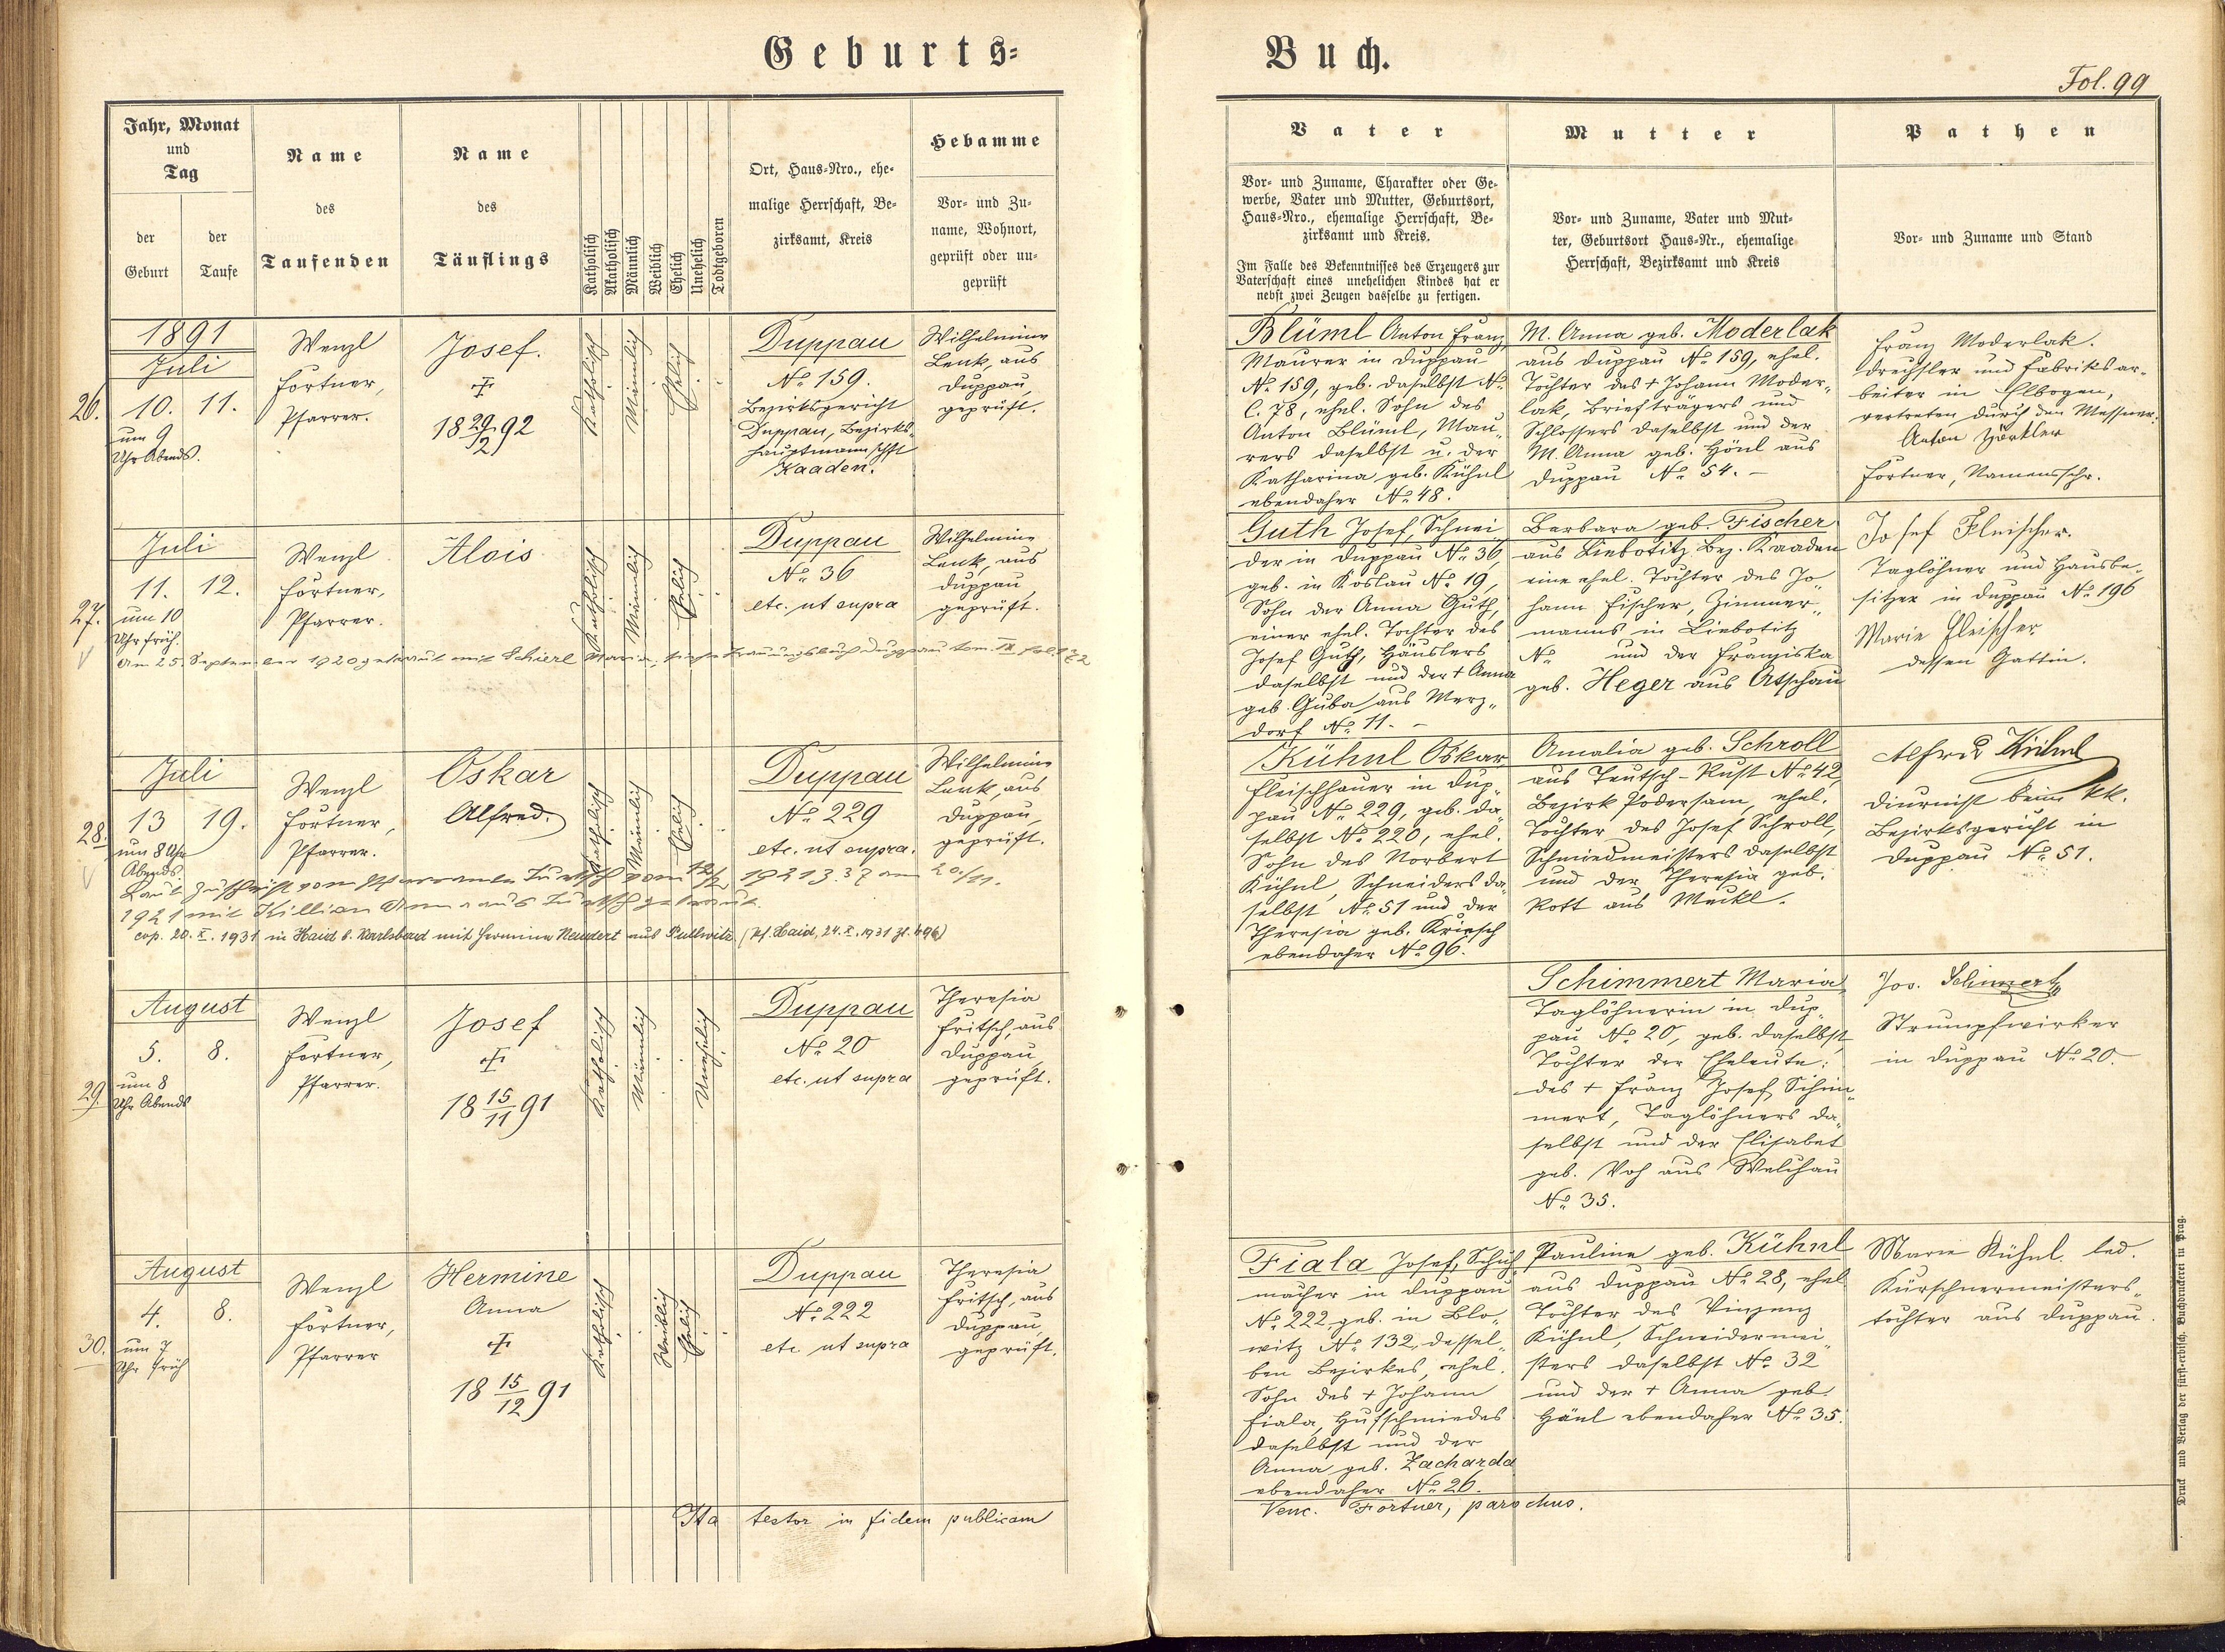 Geburts-
Buch.
Fol. 99
Jahr, Monat
und
Tag
der
Geburt
der
Taufe
Name
des
Taufenden
Name
des
Täuflings
Katholisch
Akatholisch
Männlich
Weiblich
Ehelich
Unehelich
Todtgeboren
Ort, Haus-Nro., ehe-
malige Herrschaft, Be-
zirksamt, Kreis
Hebamme
Vor- und Zu-
name, Wohnort,
geprüft oder un-
geprüft
Vater
Vor- und Zuname, Charakter oder Ge-
werbe, Vater und Mutter, Geburtsort,
Haus-Nro., ehemalige Herrschaft, Be-
zirksamt und Kreis.
Im Falle des Bekenntnisses des Erzeugers zur
Vaterschaft eines unehelichen Kindes hat er
nebst zwei Zeugen dasselbe zu fertigen.
Mutter
Vor- und Zuname, Vater und Mut-
ter, Geburtsort Haus-Nr., ehemalige
Herrschaft, Bezirksamt und Kreis
Pathen
Vor- und Zuname und Stand
26.
1891
Juli
10. 11.
um 9
Uhr Abends.
Wenzl
Fortner,
Pfarrer.
Josef.
†
18 29/2 92
Katholisch
Männlich
Ehelich
Duppau
No. 159.
Bezirksgericht
Duppau, Bezirks-
hauptmannschft
Kaaden.
Wilhelmine
Lenk, aus
Duppau,
geprüft.
Blüml Anton Franz
Maurer in Duppau
No. 159, geb. daselbst N.
C. 78, ehel. Sohn des
Anton Blüml, Mau-
rers daselbst u. der
Katharina geb. Kühnl
ebendaher No. 48.
M. Anna geb. Moderlak
aus Duppau No. 159, ehel.
Tochter des + Johann Moder-
lak, Briefträgers und
Schlossers daselbst und der
M. Anna geb. Hönl aus
Duppau No. 54. –
Franz Moderlak.
Drechsler und Fabriksar-
beiter in Elbogen,
vertreten durch den Messner:
Anton
Fortner, Namensschr.
27.
Juli
11. 12.
um 10
Uhr früh.
Wenzl
Fortner,
Pfarrer.
Alois
Katholisch
Männlich
Ehelich
Duppau
No. 36
etc. ut supra
Wilhelmine
Lenk, aus
Duppau,
geprüft.
Am 25. September 1920 getraut mit Schierl Maria, siehe Trauungsbuch Duppau tom. IX fol.
Guth Josef, Schnei-
der in Duppau No. 36,
geb. in Koslau No. 19,
Sohn der Anna Guth,
einer ehel. Tochter des
Josef Guth, Häuslers
daselbst und der + Anna
geb. Guba aus Merz-
dorf No. 11. –
Barbara geb. Fischer
aus Liebotitz Bez. Kaaden
eine ehel. Tochter des Jo-
hann Fischer, Zimmer-
manns in Liebotitz
No. und der Franziska
geb. Heger aus Atschau
Josef Fleischer.
Taglöhner und Hausbe-
sitzer in Duppau No. 196
Marie Fleischer
dessen Gattin.
28.
Juli
13 19.
um 8 Uhr
Abends.
Wenzl
Fortner,
Pfarrer.
Oskar
Alfred.
Katholisch
Männlich
Ehelich
Duppau
No. 229
etc. ut supra.
Wilhelmine
Lenk, aus
Duppau,
geprüft.
Laut Zuschrift vom Pfarramte vom 1921 am 20./11.
1921 mit Killian Anna aus getraut.
cop. 20. X. 1931 in Haid b. Karlsbad mit Hermine Neudert aus Pullwitz (Pf. Haid, 24. X. 1931 Zl. 496)
Kühnl Oskar,
Fleischhauer in Dup-
pau No. 229, geb. da-
selbst No. 220, ehel.
Sohn des Norbert
Kühnl, Schneiders da-
selbst No. 51 und der
Theresia geb. Kriesch
ebendaher No. 96.
Amalia geb. Schroll
aus Teutsch-Rust No. 42,
Bezirk Podersam, ehel.
Tochter des Josef Schroll,
Schmiedmeisters daselbst
und der Theresia geb.
Rott aus Meckl.
Alfred Kühnl
Diurnist beim kk.
Bezirksgericht in
Duppau No. 51.
29.
August
5. 8.
um 8
Uhr Abends
Wenzl
Fortner,
Pfarrer.
Josef
†
18 15/11 91
Katholisch
Männlich
Unehelich
Duppau
No. 20
etc. ut supra
Theresia
Fritsch, aus
Duppau,
geprüft.
Schimmert Maria
Taglöhnerin in Dup-
pau No. 20, geb. daselbst,
Tochter der Eheleute:
des + Franz Josef Schim-
mert, Taglöhners da-
selbst und der Elisabet
geb. Voh aus Welchau
No. 35.
Jos. Schimmert
Strumpfwirker
in Duppau No. 20.
30.
August
4. 8.
um 7
Uhr früh
Wenzl
Fortner,
Pfarrer
Hermine
Anna
†
18 15/12 91
Katholisch
Weiblich
Ehelich
Duppau
No. 222
etc ut supra
Theresia
Fritsch, aus
Duppau
geprüft.
Fiala Josef, Schuh-
macher in Duppau
No. 222, geb. in Blo-
witz No. 132, dessel-
ben Bezirkes, ehel.
Sohn des + Johann
Fiala, Hufschmiedes
daselbst und der
Anna geb. Zacharda
ebendaher No. 26.
Pauline geb. Kühnl
aus Duppau No. 28, ehel
Tochter des Vinzenz
Kühnl, Schneidermei-
sters daselbst No. 32
und der + Anna geb.
Hänl ebendaher No. 35.
Marie Kühnl led.
Kürschnermeisters-
tochter aus Duppau.
Ita testor in fidem publicam
Venc. Fortner, parochus.
Druck und Verlag der fürst-erzbisch. Buchdruckerei in Prag.